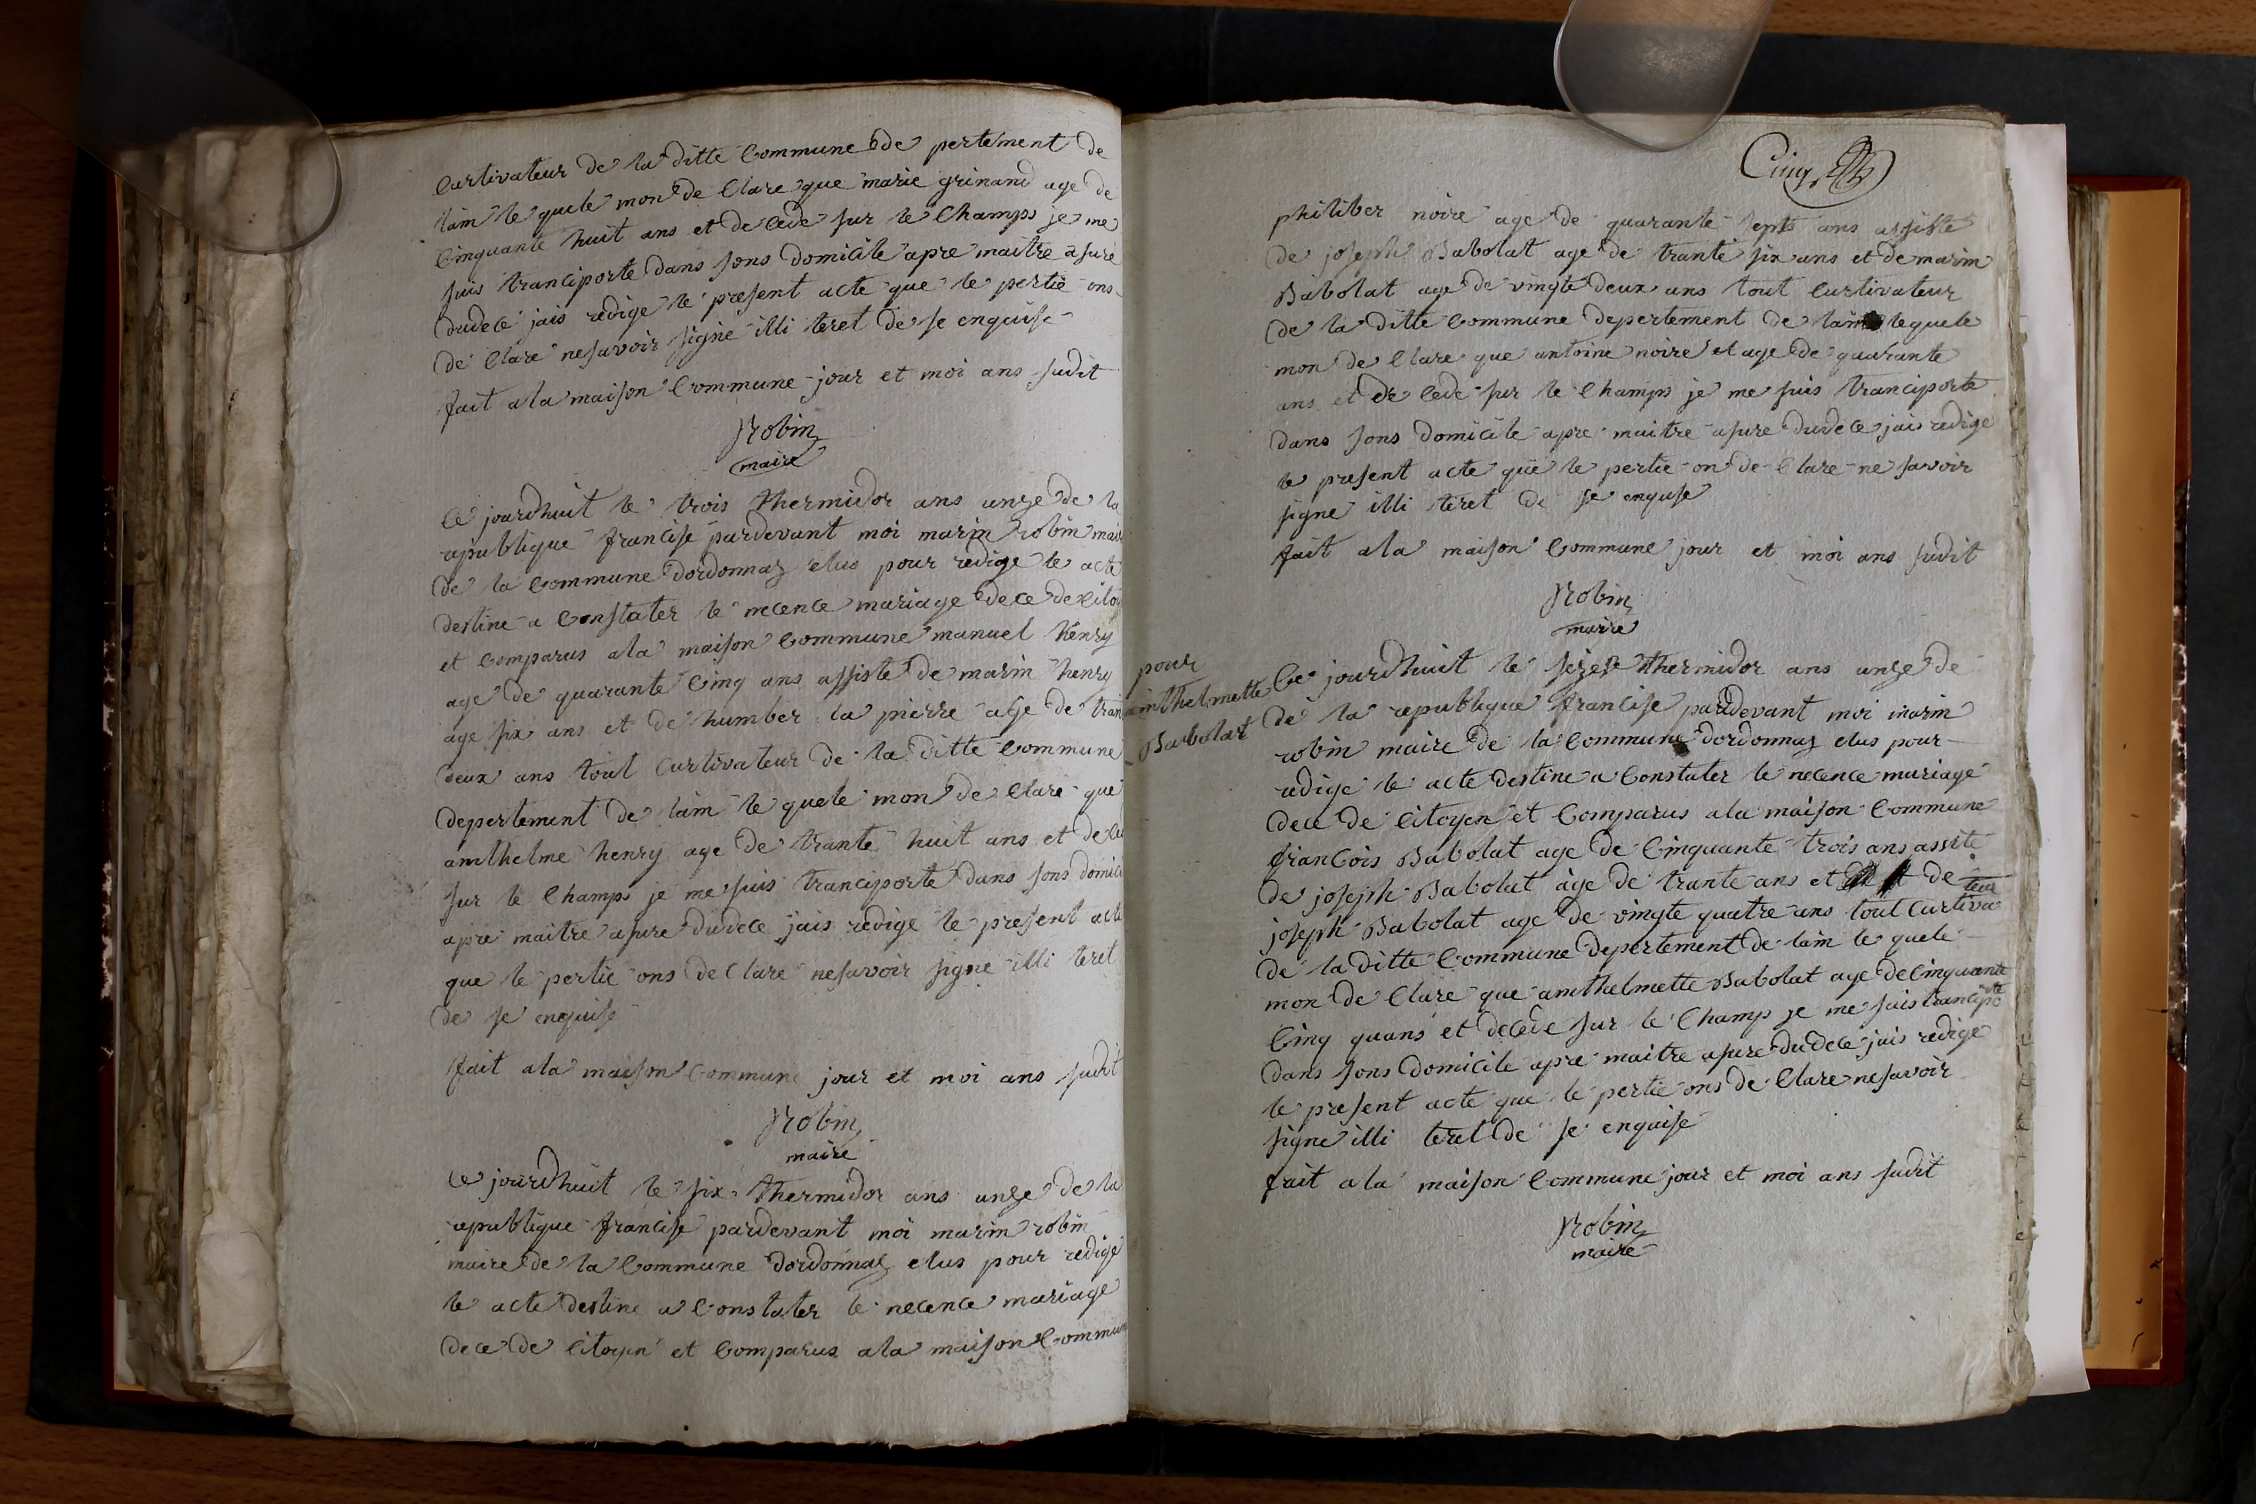 Curtivateur de la ditte Commune de pertement de
lâin le quele mon de Clare que marie grinand age de
Cinquante huit ans et de cede sur le Champs je me
suis tranciporte dans sons domicile apre maitre asure
dudece jais redige le present acte que le pertie ons
de Clare nesavoir signe illi teret de se enquise
fait ala maison Commune jour et moi ans sudit
Robin
maire
Ce jourdhuit le trois thermidor ans unze de la
republique francise pardevant moi marin robin mair
de la Commune dordonnaz elus pour redige le acte
destine a Constater le necence mariage dece de citoy
et Comparus ala maison Commune manuel henry
age de quarante Cinq ans assiste de marin henry
age six ans et de humber la pierre age de tran
deux ans tout Curtivateur de la ditte Commune
depertement de lâin le quele mon de Clare que
amthelme henry age de trante huit ans et de ce
sur le Champs je me suis tranciporte dans sons domici
apre maitre asure dudece jais redige le present acte
que le pertie ons de Clare nesavoir signe illi teret
de se enquise
fait ala maison Commune jour et moi ans sudit
Robin
maire
Ce jourdhuit le six thermidor ans unze de la
republique francise pardevant moi marin robin
maire de la Commune dordonnaz elus pour redige
le acte destine a Constater le necence mariage
dece de Citoyen et Comparus ala maison Commun
Cinq
philiber noire age de quarante sept ans assiste
de joseph Babolat age de trante six ans et de marin
Babolat age de vingte deux ans tout Curtivateur
de la ditte Commune depertement de lâin lequele
mon de Clare que antoine noire et age de quarante
ans et de Cede sur le Champs je me suis tranciporte
dans sons domicile apre maitre asure dudece jais redige
le present acte que le pertie on de Clare ne savoir
signe illi teret de se enquse
fait ala maison Commune jour et moi ans sudit
Robin
maire
pour
amthelmette
Babolat
Ce jourdhuit le seze thermidor ans unze de
de la republique francise pardevant moi marin
robin maire de la Commune dordonnaz elus pour
redige le acte destine a Constater le necence mariage
dece de Citoyen et Comparus ala maison Commune
francois Babolat age de Cinquante trois ans assite
de joseph Babolat age de trante ans et de
joseph Babolat age de vingte quatre ans tout Curtivateur
de la ditte Commune depertement de lâin le quele
mon de Clare que amthelmette Babolat age de Cinquante
Cinq quans et decede sur le Champ je me suis tranciporte
dans sons domicile apre maitre asure dudece jais redige
le present acte que le pertie ons de Clare nesavoir
signe illi teret de se enquise
fait ala maison Commune jour et moi ans sudit
Robin
maire